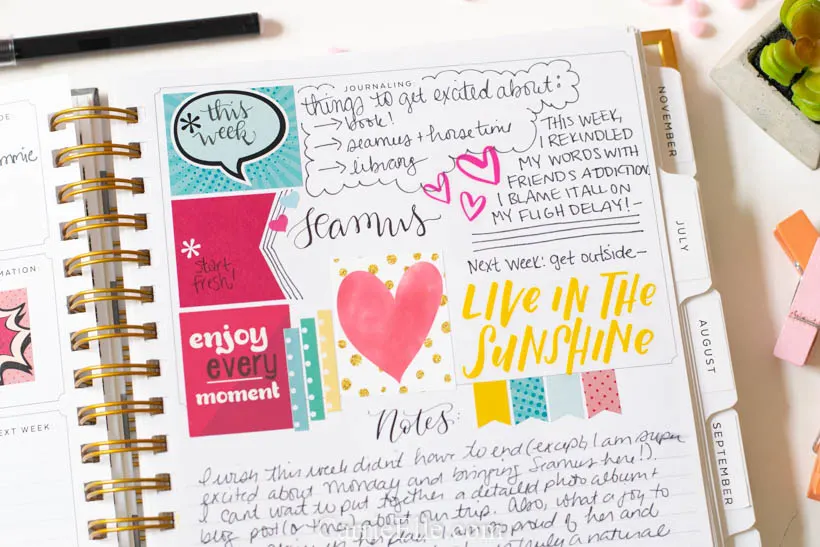 mmie
MATION
EXT WEEK
this
week
start
fresh!
enjoy
every
moment
JOURNALING
things to get excited about:
→ book!
→ seamus + horsetime
→ library
THIS WEEK,
I REKINDLED
MY WORDS WITH
FRIENDS ADDICTION.
I BLAME IT ALL ON
MY FLIGH DELAY!-
Seamus
Next Week: get outside-
LIVE IN THE
SUNSHINE
Notes:
I wish this week didn't have to end (except I am super
excited about Monday and bringing Seamus here!).
I cant wait to put together a detailed photo album +
blog post(o them about our trip. Also, what a joy to
with her I am so proud of her and
truly a natural
CarrieElle.com
NOVEMBER
JULY
AUGUST
SEPTEMBER